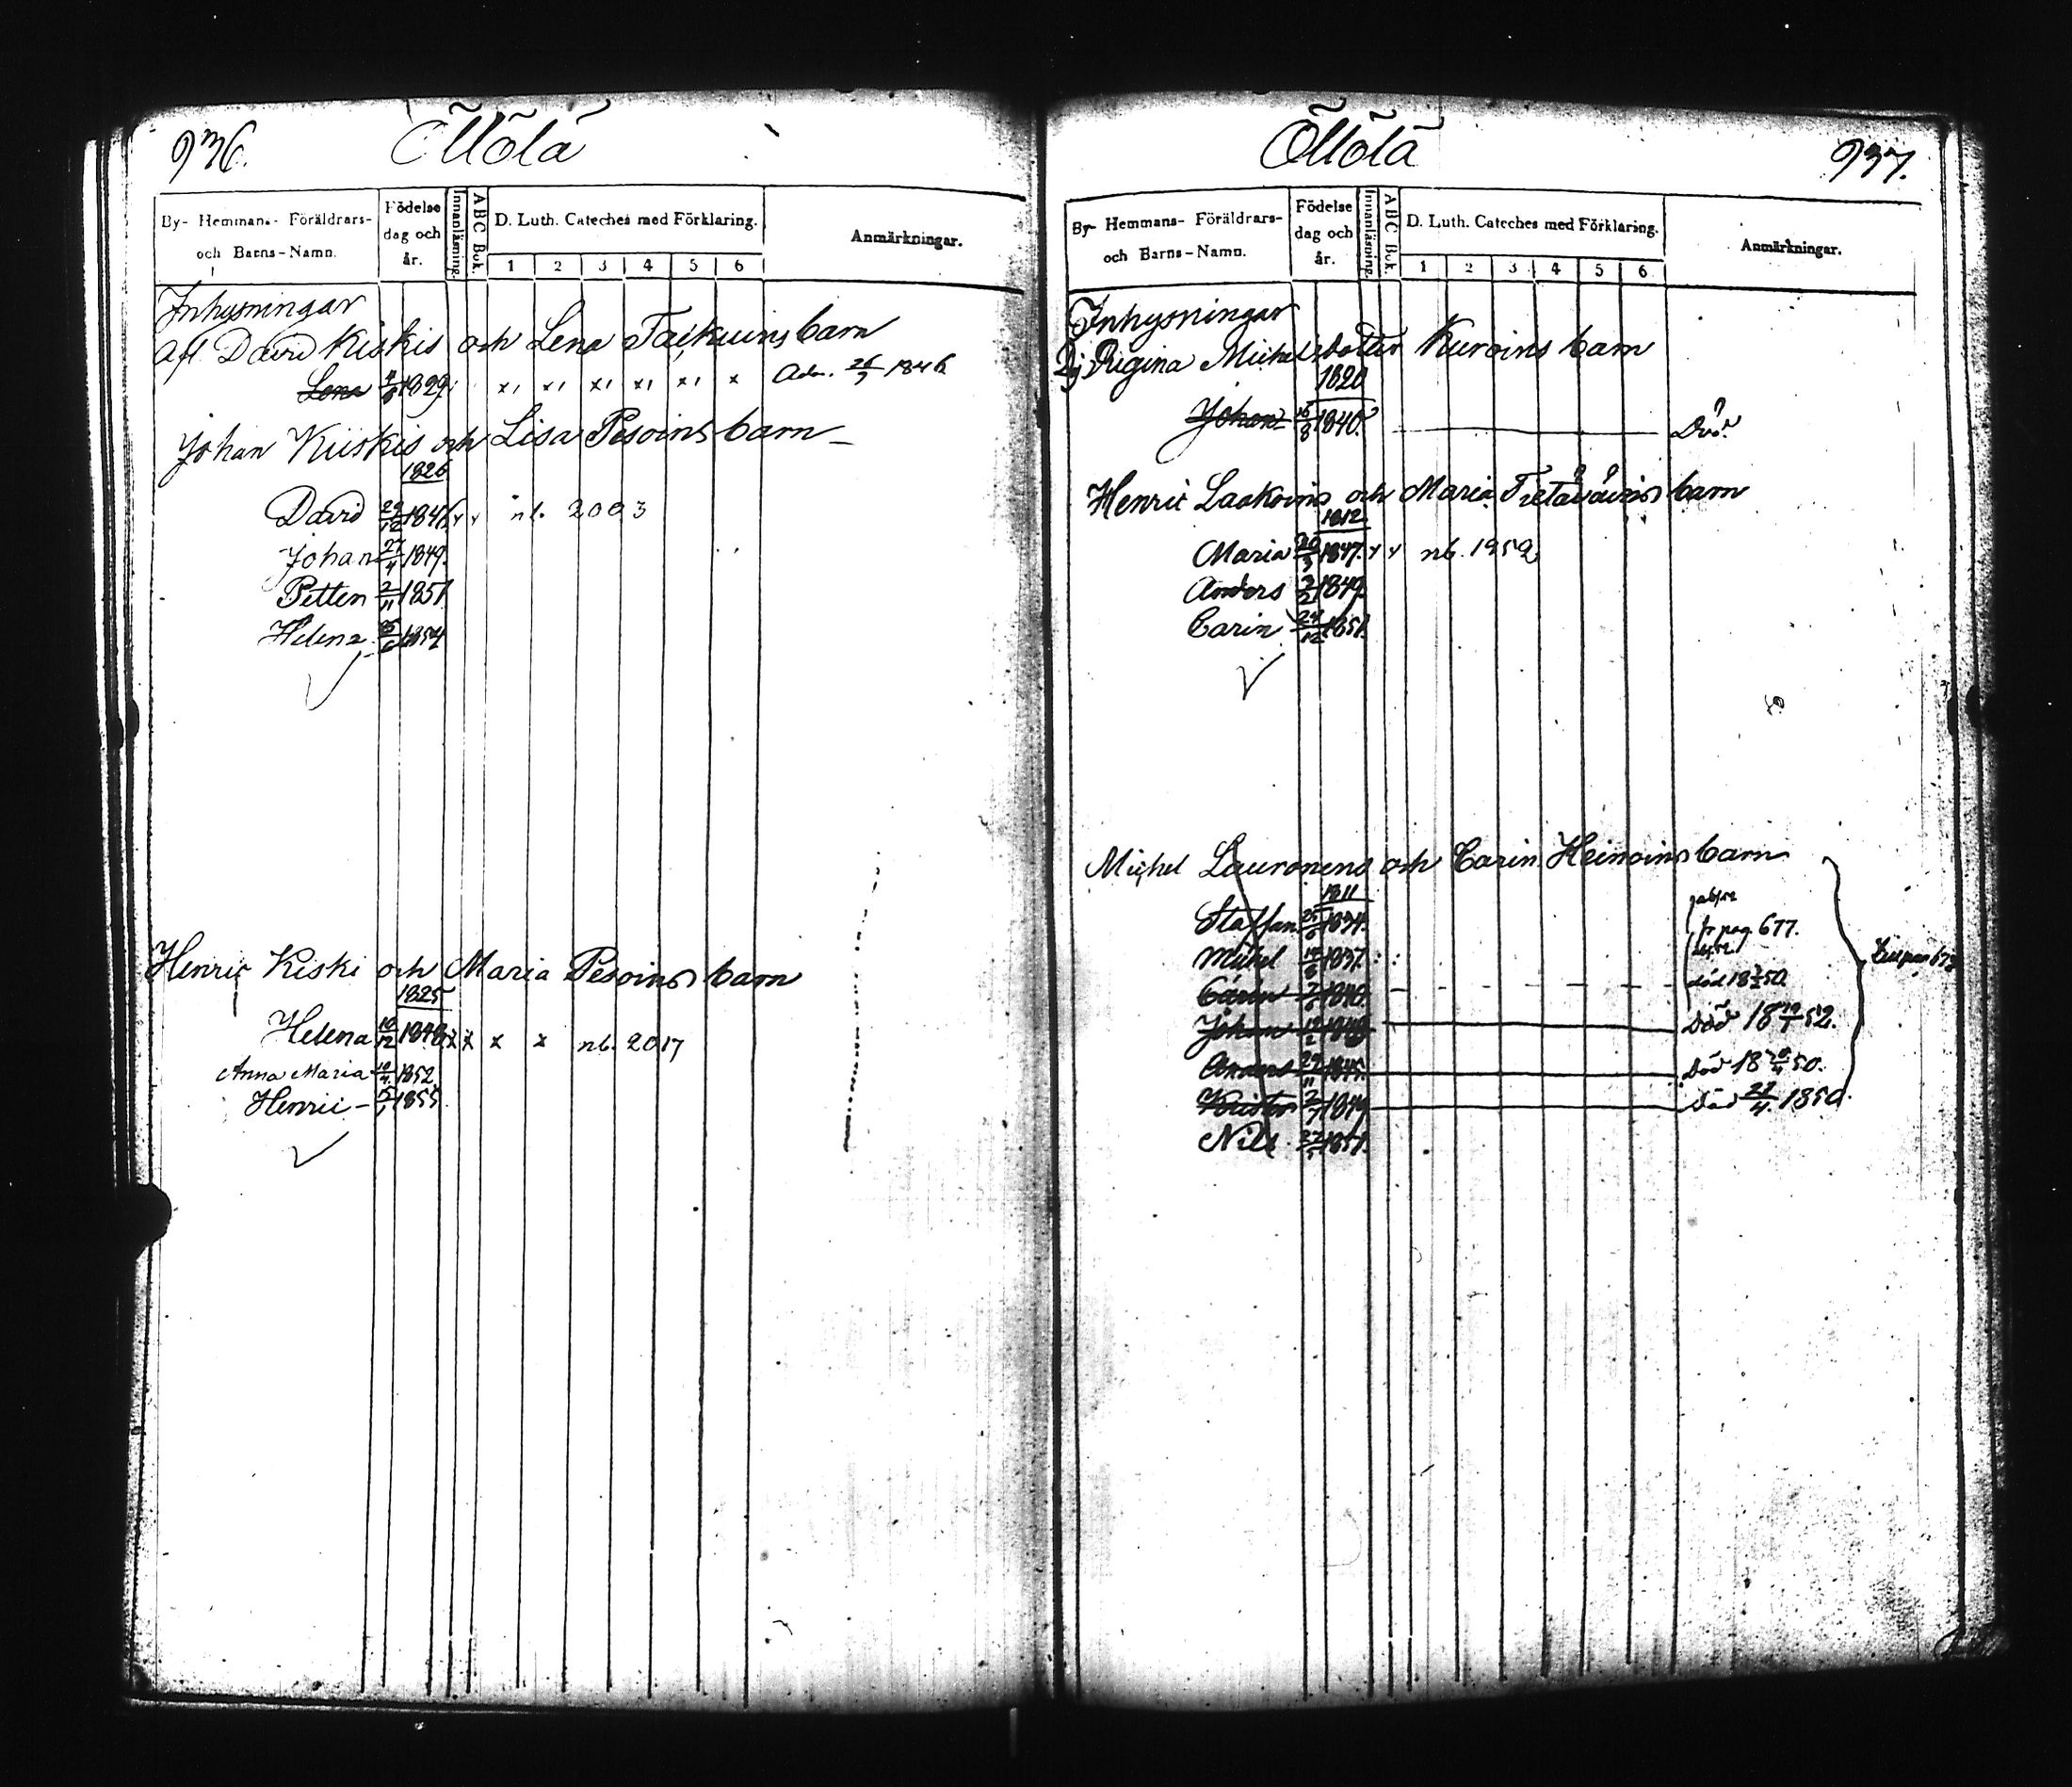 936. Ollölä
By- Hemmans- Föräldrars- och Barns-Namn. Födelse dag och år. Innanläsning. ABC Bok. D. Luth. Cateches med Förklaring. 1 2 3 4 5 6 Anmärkningar.
Inhysningar
Afl. David Kiskis och Lena barn
Lena 1829 x x x x x x 1846
Johan Kiiskis och Lisa Pesoins barn
1826
David 29/12 1846 nb. 2003
Johan 27/4 1849.
Petter 2/11 1851
Helena 1854
Henric Kiski och Maria Pesoins barn
1825
Helena 10/12 1848 x x x x nb. 2017
Anna Maria 10/4 1852
Henric 5/1 1855
Ollölä 937.
By- Hemmans- Föräldrars- och Barns-Namn. Födelse dag och år. Innanläsning. ABC Bok. D. Luth. Cateches med Förklaring. 1 2 3 4 5 6 Anmärkningar.
Inhysningar
Regina Michelsdotter Kuroins barn
1820
Johan 15/8 1840. Död.
Henric Laakoins och Maria barn
1812
Maria 20/3 1847. nb. 1959
Anders 3/2 1849
Carin 24/12 1851.
Michel Lauronens och Carin Heinoins barn
1811
Staffan 1834. fr pag. 677.
Michel 1837.
Carin 1840. död 1850.
Johan Död 1852.
Anders Död 1850.
Krister 2/7 1849 Död 22/4 1850.
Nils 1851.